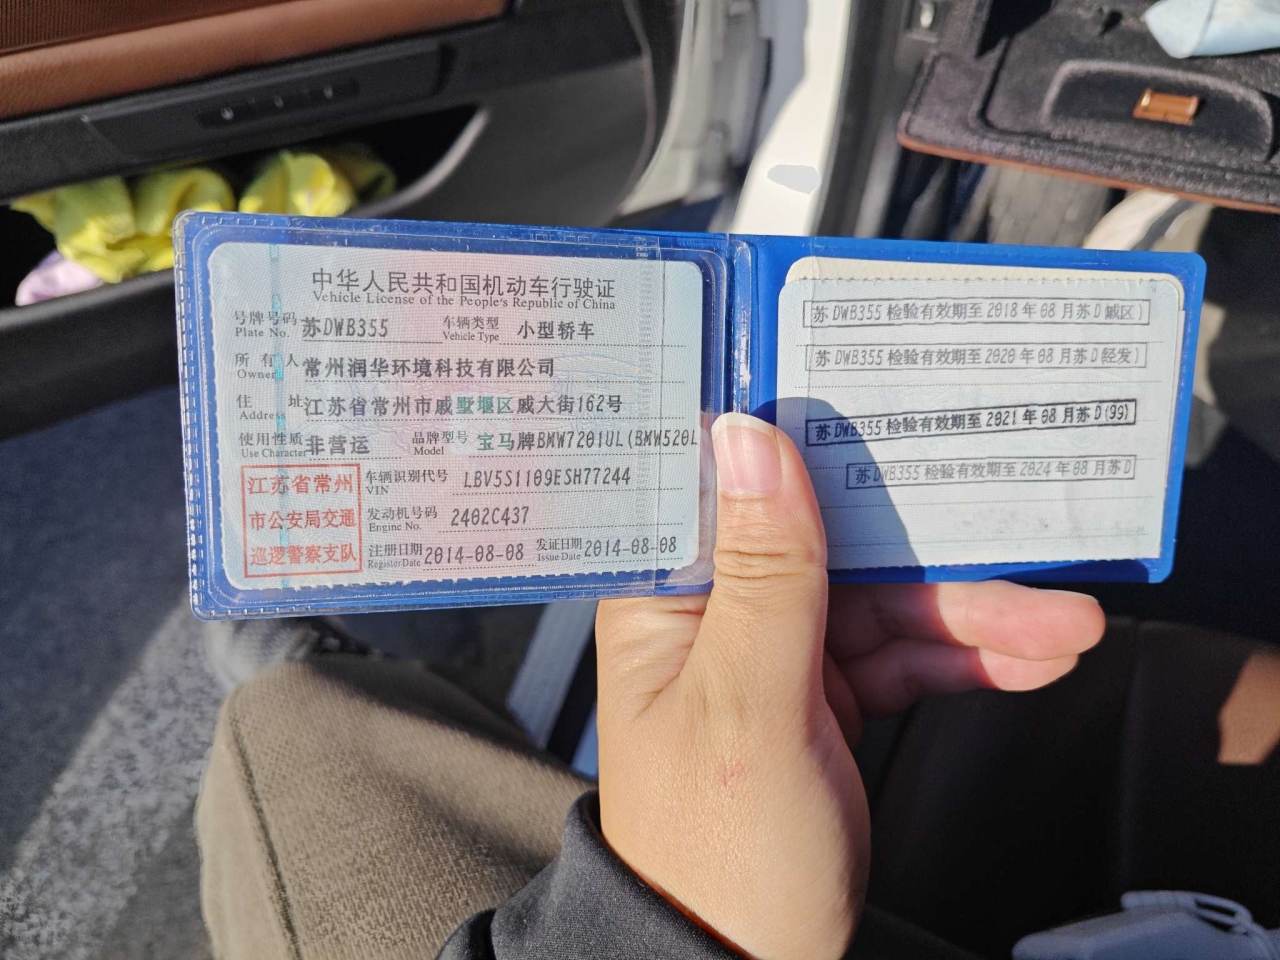 中华人民共和国机动车行驶证
Vehicle License of the People's Republic of China
号牌号码 苏DWB355 车辆类型 小型轿车
Plate No. Vehicle Type
所有人 常州润华环境科技有限公司
Owner
住址 江苏省常州市戚墅堰区戚大街162号
Address
使用性质 非营运 品牌型号 宝马牌BMW7201UL(BMW520L
Use Character Model
江苏省常州
市公安局交通
巡逻警察支队
车辆识别代号 LBV5S1109ESH77244
VIN
发动机号码 2402C437
Engine No.
注册日期 2014-08-08 发证日期 2014-08-08
Register Date Issue Date
苏DWB355 检验有效期至 2018 年 08 月苏D 戚区)
苏DWB355 检验有效期至 2020 年 08 月苏D (轻发)
苏DWB355 检验有效期至 2021 年 08 月苏D (99)
苏DWB355 检验有效期至 2024 年 08 月苏D